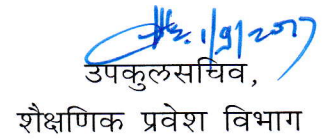 1/9/2017
उपकुलसचिव,
शैक्षणिक प्रवेश विभाग